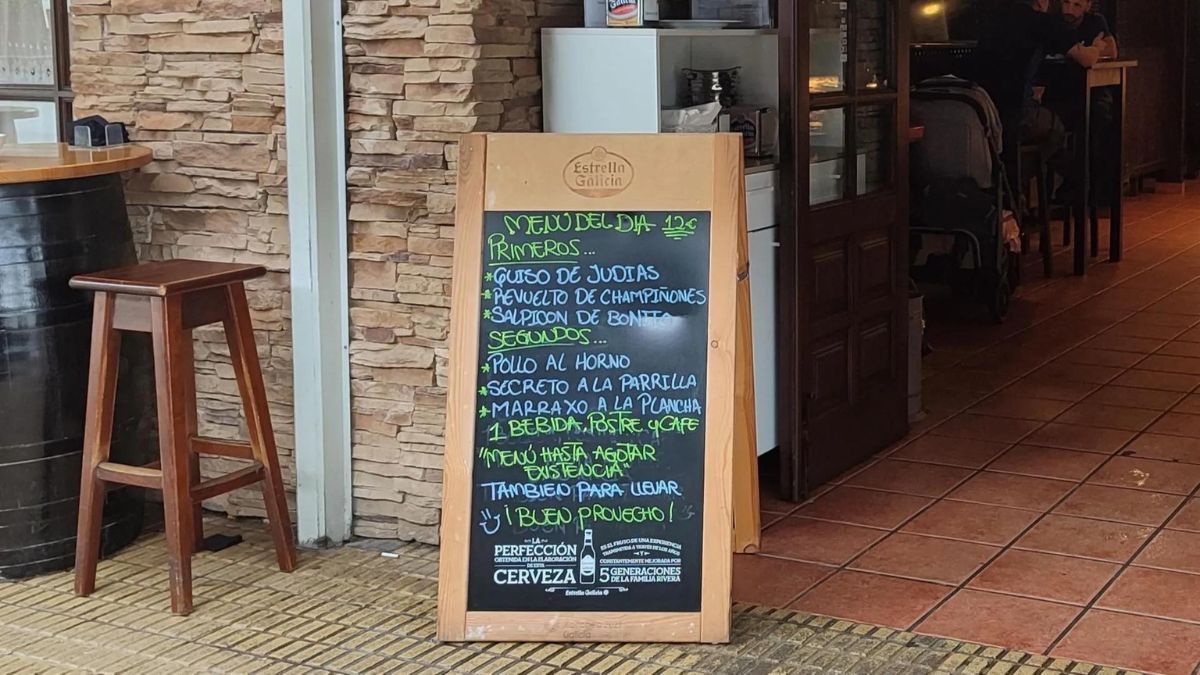 Estrella
Galicia
MENÚ DEL DIA 12€
PRIMEROS...
*GUISO DE JUDIAS
*REVUELTO DE CHAMPIÑONES
*SALPICON DE BONITO
SEGUNDOS...
*POLLO AL HORNO
*SECRETO A LA PARRILLA
*MARRAXO A LA PLANCHA
1 BEBIDA, POSTRE y CAFE
"MENÚ HASTA AGOTAR
EXISTENCIA"
TAMBIEN PARA LLEVAR
¡BUEN PROVECHO!
LA
PERFECCIÓN
OBTENIDA EN LA ELABORACIÓN
DE ESTA
CERVEZA
ES EL FRUTO DE UNA EXPERIENCIA
TRANSMITIDA A TRAVÉS DE LOS AÑOS
Y
CONSTANTEMENTE MEJORADA POR
5 GENERACIONES
DE LA FAMILIA RIVERA
Estrella Galicia
Galicia